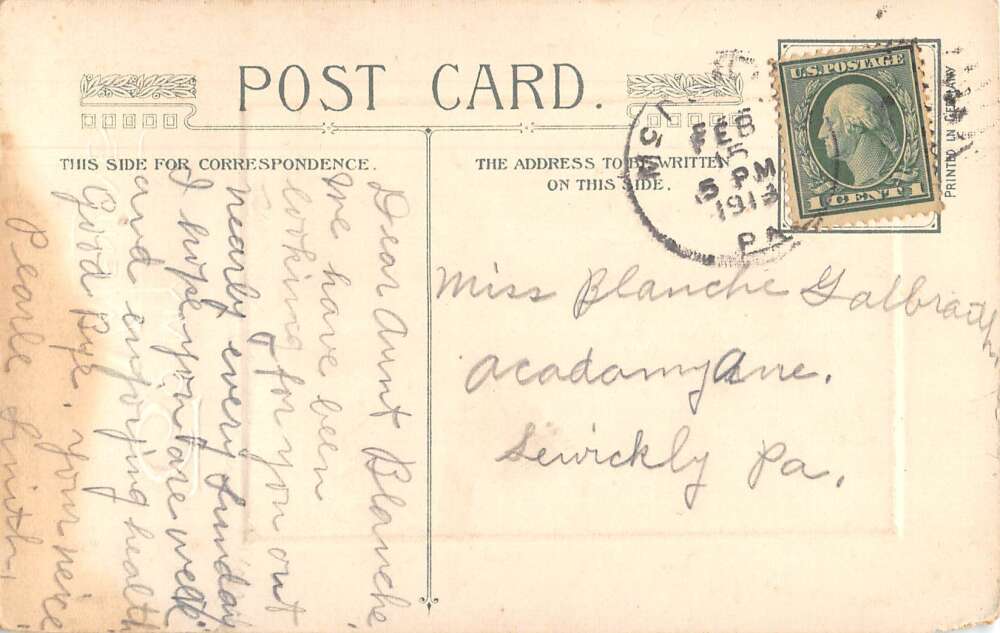 POST CARD.
THIS SIDE FOR CORRESPONDENCE.
THE ADDRESS TO BE WRITTEN
ON THIS SIDE.
U.S. POSTAGE
1 CENT 1
PRINTED IN GERMANY
FEB
15
5 PM
1913
PA
Miss Blanche Galbraith
Acadamy Ave.
Sewickly Pa.
Dear Aunt Blanche
We have been
looking for you out
nearly every Sunday
I hope you are well
and enjoying health
Good Bye. your niece
Pearle Smith.